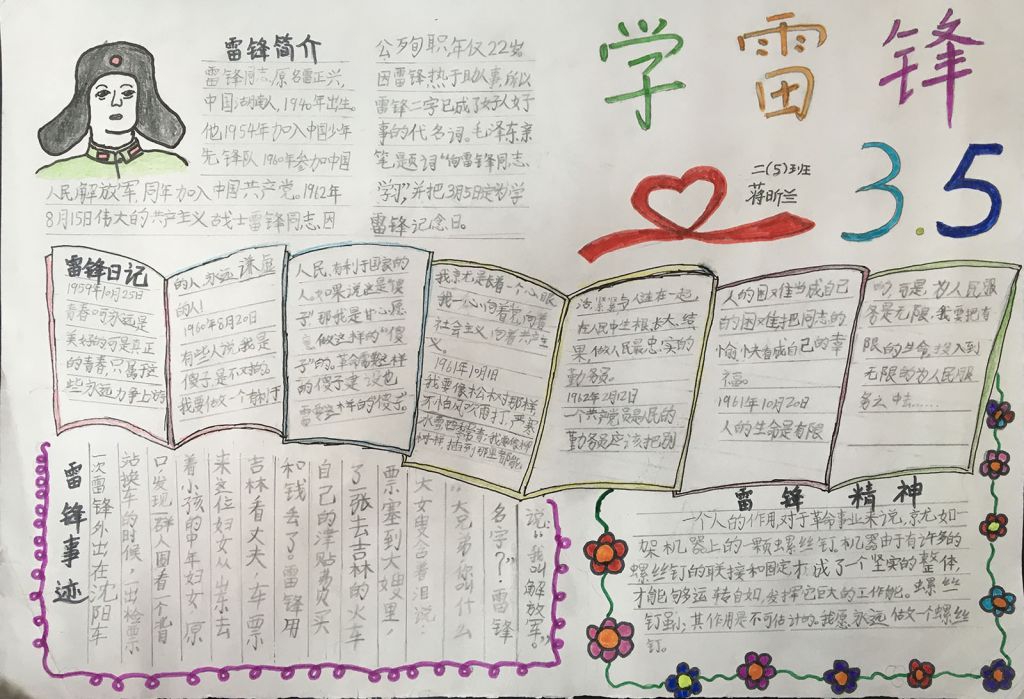 学雷锋
3.5
二(5)班
蒋昕兰
雷锋简介
雷锋同志,原名雷正兴,
中国湖南人,1940年出生。
他1954年加入中国少年
先锋队,1960年参加中国
人民解放军,同年加入中国共产党。1962年
8月15日伟大的共产主义战士雷锋同志,因
公殉职,年仅22岁
因雷锋热于助人事,所以
雷锋二字已成了好人好
事的代名词。毛泽东亲
笔题词“向雷锋同志
学习”,并把3月5日定为学
雷锋记念日。
雷锋日记
1959年10月25日
青春啊,永远是
美好的,可是真正
的青春,只属于这
些永远力争上游
的人,永远谦虚
的人!
1960年8月20日
有些人说我是
傻子,是不对的。
我要做一个有利于
人民,有利于国家的
人。如果说这是“傻
子”,那我是甘心愿
意做这样的“傻
子”的。革命需要这样
的傻子,建设也
需要这样的“傻子”。
我就是长着一个心眼,
我一心向着党,向着
社会主义,向着共产主
义
1961年10月1日
我要像松树那样,
不怕风吹雨打,严寒
活,紧紧与人连在一起,
在人民中生根、长大、结
果,做人民最忠实的
勤务员。
1962年2月12日
一个共产党员是人民的
勤务员,应该把别
人的困难当成自己
的困难,把同志的
愉快看成自己的幸
福。
1961年10月20日
人的生命是有限
的,可是,为人民服
务是无限,我要把有
限的生命,投入到
无限的为人民服
务之中去……
雷锋事迹
一次雷锋外出在沈阳车
站换车的时候,一出检票
口,发现一群人围看一个背
着小孩的中年妇女,原
来这位妇女从山东去
吉林看丈夫,车票
和钱丢了。雷锋用
自己的津贴费买
了一张去吉林的火车
票塞到大嫂手里,
大嫂含着泪说:
“大兄弟,你叫什么
名字?”雷锋
说:“我叫解放军。”
雷锋精神
一个人的作用,对于革命事业来说,就如一
架机器上的一颗螺丝钉。机器由于有许多的
螺丝钉的联接和固定,才成了一个坚实的整体,
才能够运转自如,发挥它巨大的工作能。螺丝
钉虽小,其作用是不可估计的。我愿永远做个螺丝
钉。